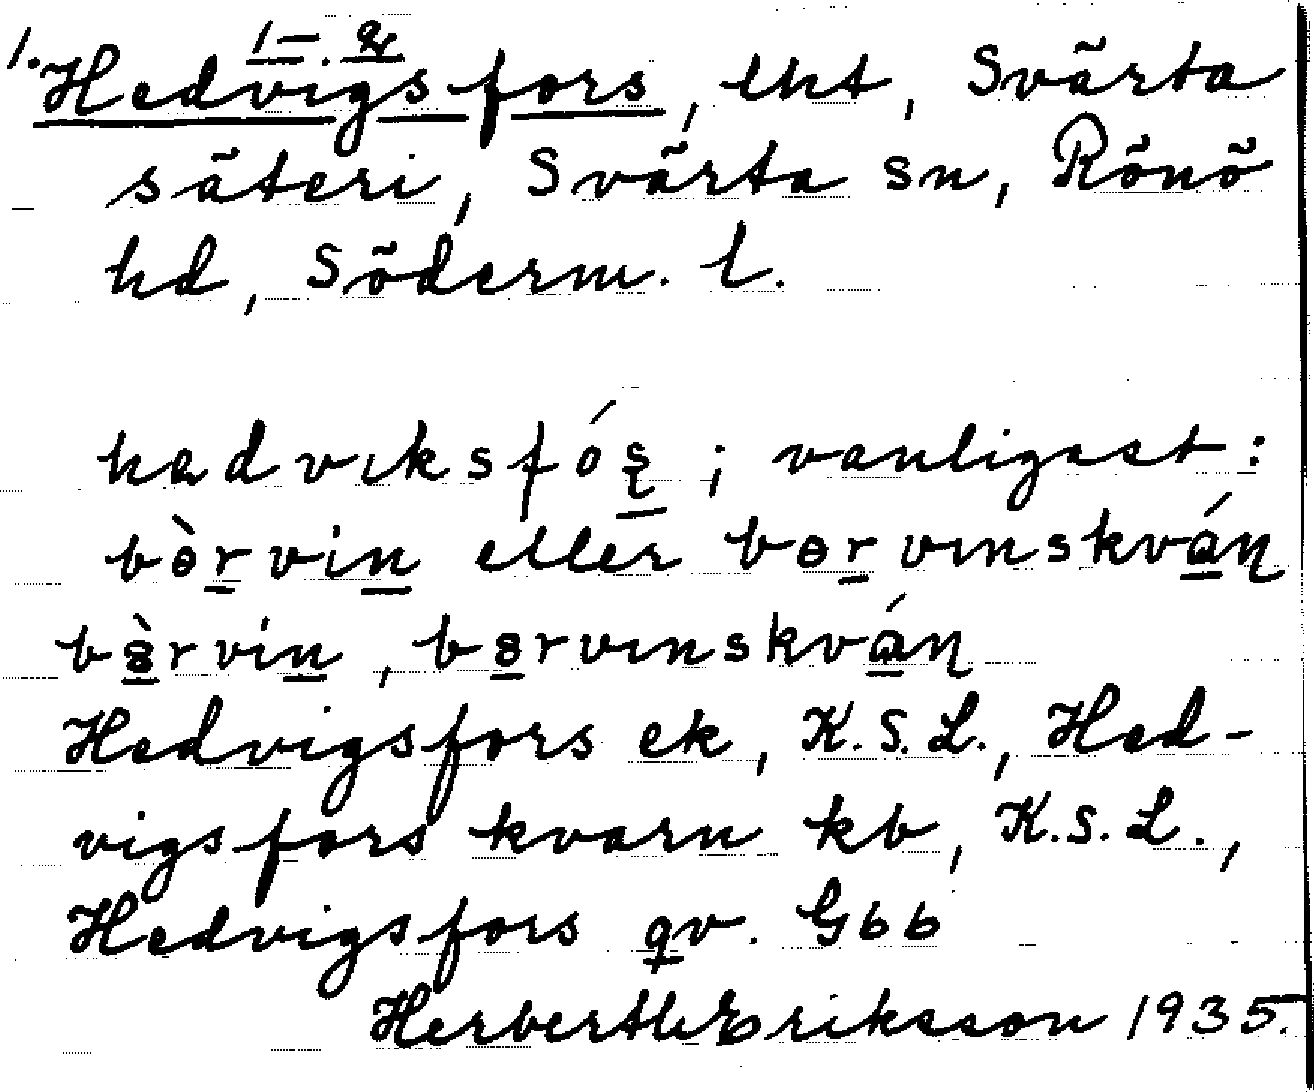 1. Hedvigsfors, lht, Svärta
säteri, Svärta sn, Rönö
hd, Söderm. l.
hedvıksfóş ; vanligast:
bɵ̀rvin eller bɵrvınskváɳ
bèrvin, bɵrvınskváɳ
Hedvigsfors ek, K.S.L., Hed-
vigsfors kvarn kb, K.S.L.,
Hedvigsfors qv. Gbb
Herbert Eriksson 1935.